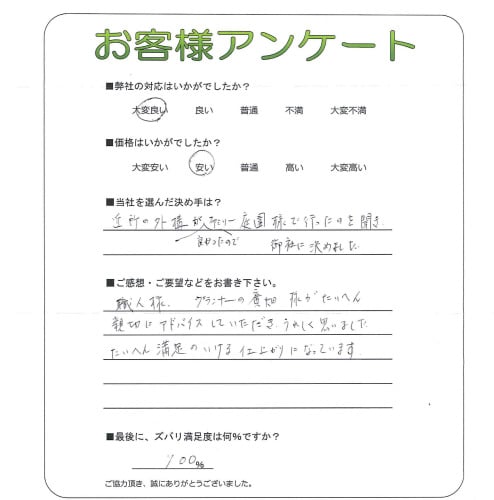 お客様アンケート
■弊社の対応はいかがでしたか？
大変良い 良い 普通 不満 大変不満
■価格はいかがでしたか？
大変安い 安い 普通 高い 大変高い
■当社を選んだ決め手は？
近所の外構が 庭園様で行ったのを聞き
良かったので 御社に決めました
■ご感想・ご要望などをお書き下さい。
職人様、プランナーの 様がたいへん
親切にアドバイスしていただき、うれしく思いました
たいへん満足のいける仕上がりになっています。
■最後に、ズバリ満足度は何％ですか？
100％
ご協力頂き、誠にありがとうございました。